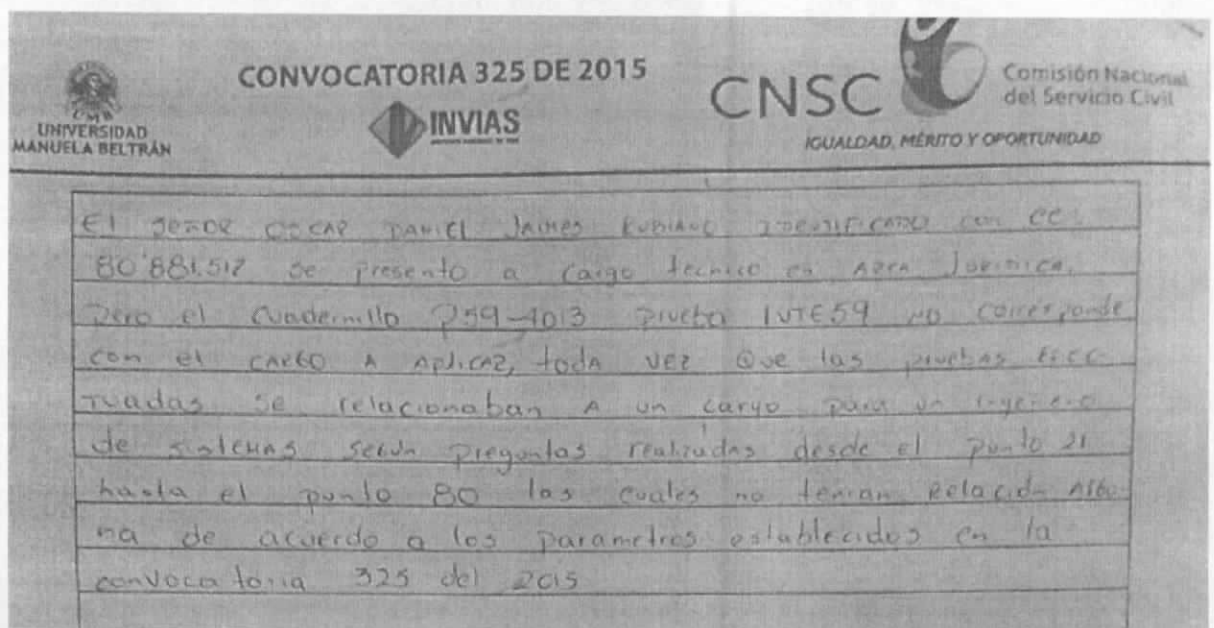 CONVOCATORIA 325 DE 2015
UMB
UNIVERSIDAD
MANUELA BELTRÁN
INVIAS
CNSC
Comisión Nacional
del Servicio Civil
IGUALDAD, MÉRITO Y OPORTUNIDAD
El SEÑOR OSCAR DANIEl JAIMES RUBIANO IDENTIFICADO con CC.
80'881.512 se presento a cargo tecnico en AREA JURIDICA.
Pero el cuadernillo P59-4013 Prueba IUTE59 NO corresponde
con el CARGO A APlicAR, toda VEZ Que las pruebas EFEC
TUadas se relacionaban A un cargo para un ingeniero
de sistemas SEGUN preguntas realizadas desde el punto 21
hasta el punto 80 las cuales no tenian Relación Algu
na de acuerdo a los parametros establecidos en la
convocatoria 325 del 2015